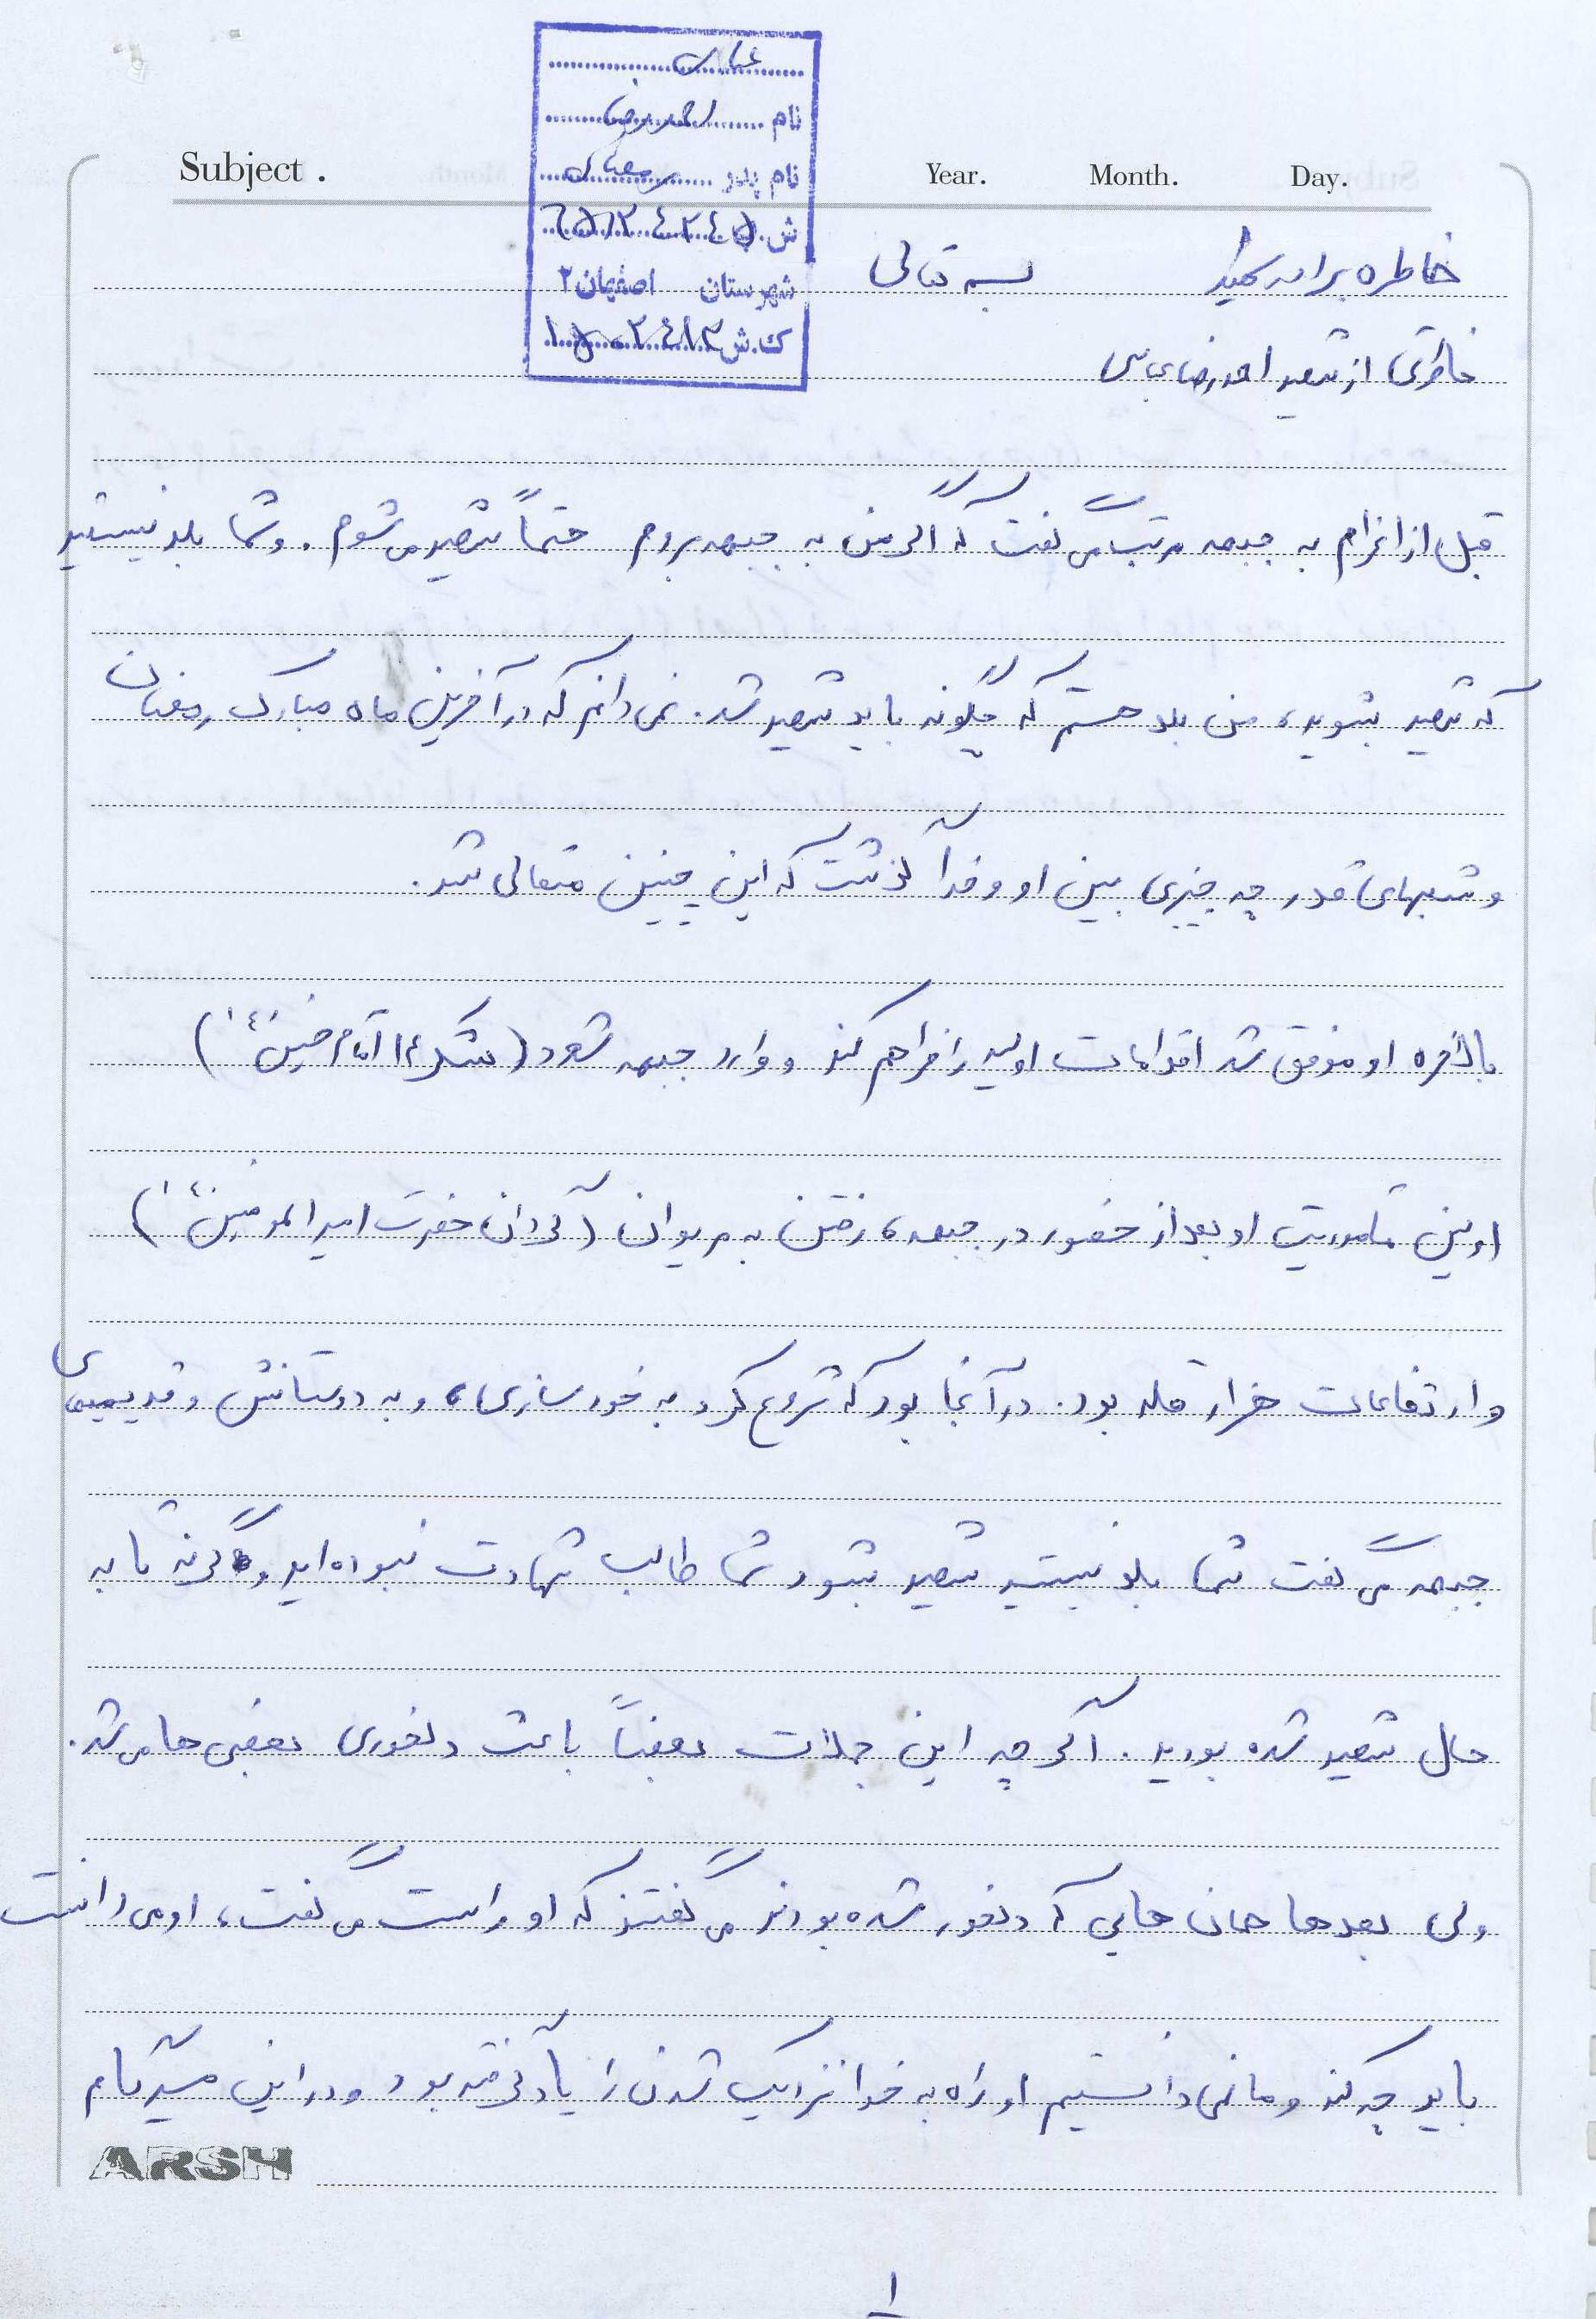 عباسی
نام احمدرضا
نام پدر رمضان
شهرستان اصفهان ۲
Subject . Year. Month. Day.
خاطره برادر شهید بسمه تعالی
خاطراتی از شهید احمدرضا عباسی
قبل از اعزام به جبهه مرتب می گفت که اگر من به جبهه بروم حتماً شهید می شوم. و شما بلد نیستید
که شهید بشوید، من بلد هستم که چگونه باید شهید شد. نمی دانم که در آخرین ماه مبارک رمضان
و شبهای قدر چه چیزی بین او و خدا گذشت که این چنین متعالی شد.
بالأخره او موفق شد اقدامات اولیه را فراهم کند و وارد جبهه شود (لشکر ۱۴ امام حسین (ع))
اولین مأموریت او بعد از حضور در جبهه، رفتن به مریوان (گردان حضرت امیرالمومنین (ع))
و ارتفاعات هزار قله بود. در آنجا بود که شروع کرد به خودسازی، و به دوستانش و قدیمیهای
جبهه می گفت شما بلد نیستید شهید بشود شما طالب شهادت نبوده اید وگرنه تا به
حال شهید شده بودید. اگر چه این جملات بعضاً باعث دلخوری بعضی ها می شد.
ولی بعدها همان هایی که دلخور شده بودند می گفتند که او راست می گفت، او می دانست
باید چه کند و ما نمی دانستیم او راه به خدا نزدیک شدن را یاد گرفته بود و در این مسیر گام
ARSH
۱